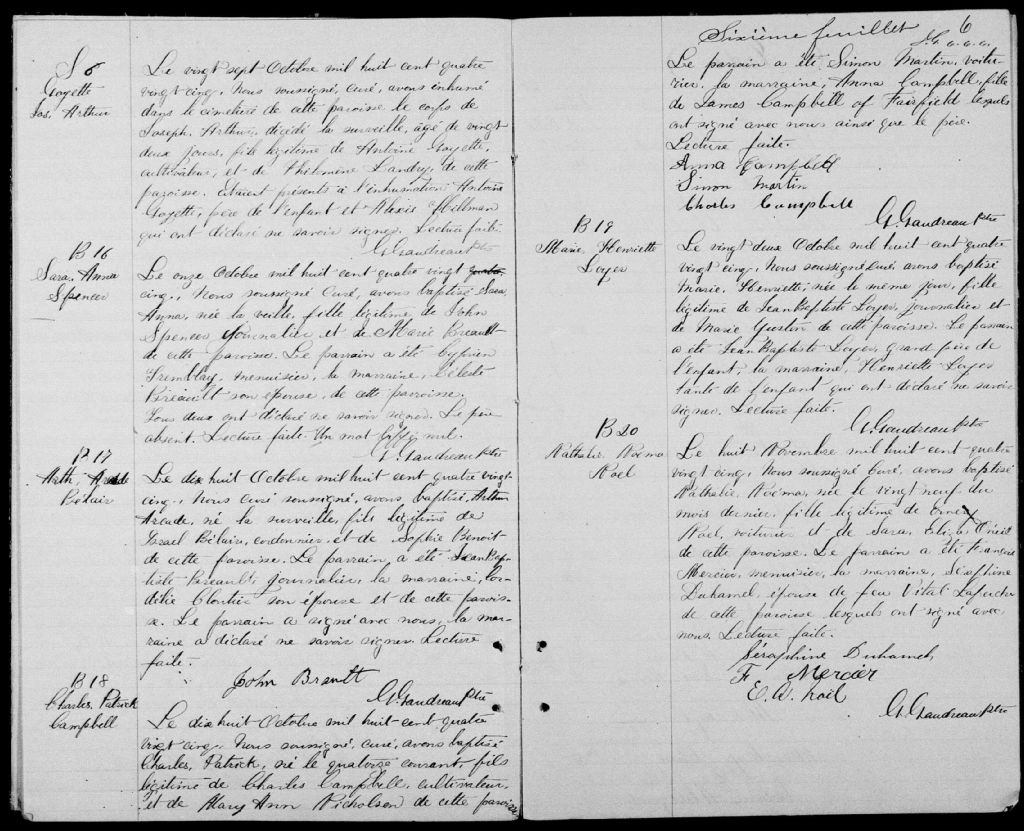 S 6
Goyette
Jos. Arthur
Le vingt sept Octobre mil huit cent quatre
vingt cinq, Nous soussigné, curé, avons inhumé
dans le cimetière de cette paroisse le corps de
Joseph, Arthur, décédé la surveille, âgé de vingt
deux jours, fils légitime de Antoine Goyette,
cultivateur, et de Philomène Landry, de cette
paroisse. Etaient présents à l'inhumation Antoine
Goyette, père de l'enfant et Alexis Hillman
qui ont déclaré ne savoir signer. Lecture faite.
G. Gaudreau Ptre
B 16
Sara, Anna
Spencer
Le onze Octobre mil huit cent quatre vingt quatre
cinq, Nous soussigné Curé, avons baptisé Sara
Anna, née la veille, fille légitime de John
Spencer journalier et de Marie Breault
de cette paroisse. Le parrain a été Cyprien
Tremblay, menuisier, la marraine, Céleste
Breault son épouse, de cette paroisse.
Tous deux ont déclaré ne savoir signer. Le père
absent. Lecture faite. Un mot biffé nul.
G. Gaudreau Ptre
B 17
Arth, Arcade
Bélair
Le dix huit Octobre mil huit cent quatre vingt
cinq, Nous curé soussigné, avons baptisé, Arthur
Arcade, né la surveille, fils légitime de
Israel Bélair, cordonnier et de Sophie Benoit
de cette paroisse. Le parrain a été Jean Bap-
tiste Breault, journalier, la marraine, Cor-
délie Cloutier son épouse et de cette parois-
se. Le parrain a signé avec nous, la mar-
raine a déclaré ne savoir signer. Lecture
faite.
John Breault
G. Gaudreau Ptre
B 18
Charles, Patrick
Campbell
Le dix huit Octobre mil huit cent quatre
vingt cinq, Nous soussigné, curé, avons baptisé
Charles, Patrick, né le quatorze courant, fils
légitime de Charles Campbell, cultivateur,
et de Mary Ann Nicholson de cette paroisse
Sixième feuillet
6
Le parrain a été Simon Martin, voitu-
rier, la marraine, Anna Campbell, fille
de James Campbell of Fairfield lesquels
ont signé avec nous ainsi que le père.
Lecture faite.
Anna Campbell
Simon Martin
Charles Campbell
G. Gaudreau Ptre
B 19
Marie, Henriette
Loyer
Le vingt deux Octobre mil huit cent quatre
vingt cinq, Nous soussigné Curé avons baptisé
Marie, Henriette, née le même jour, fille
légitime de Jean Baptiste Loyer, journalier et
de Marie de cette paroisse. Le parrain
a été Jean Baptiste Loyer, grand père de
l'enfant, la marraine, Henriette Loyer
tante de l'enfant qui ont déclaré ne savoir
signer. Lecture faite.
G. Gaudreau Ptre
B 20
Nathalie, Noëma
Noël
Le huit Novembre mil huit cent quatre
vingt cinq, Nous soussigné Curé, avons baptisé
Nathalie, Noëma, née le vingt neuf du
mois dernier, fille légitime de
Noël, voiturier et de Sara,
de cette paroisse. Le parrain a été François
Mercier, menuisier, la marraine, Séraphine
Duhamel, épouse de feu Vital
de cette paroisse lesquels ont signé avec
nous. Lecture faite.
Séraphine Duhamel
F Mercier
E. A. Noël
G. Gaudreau Ptre